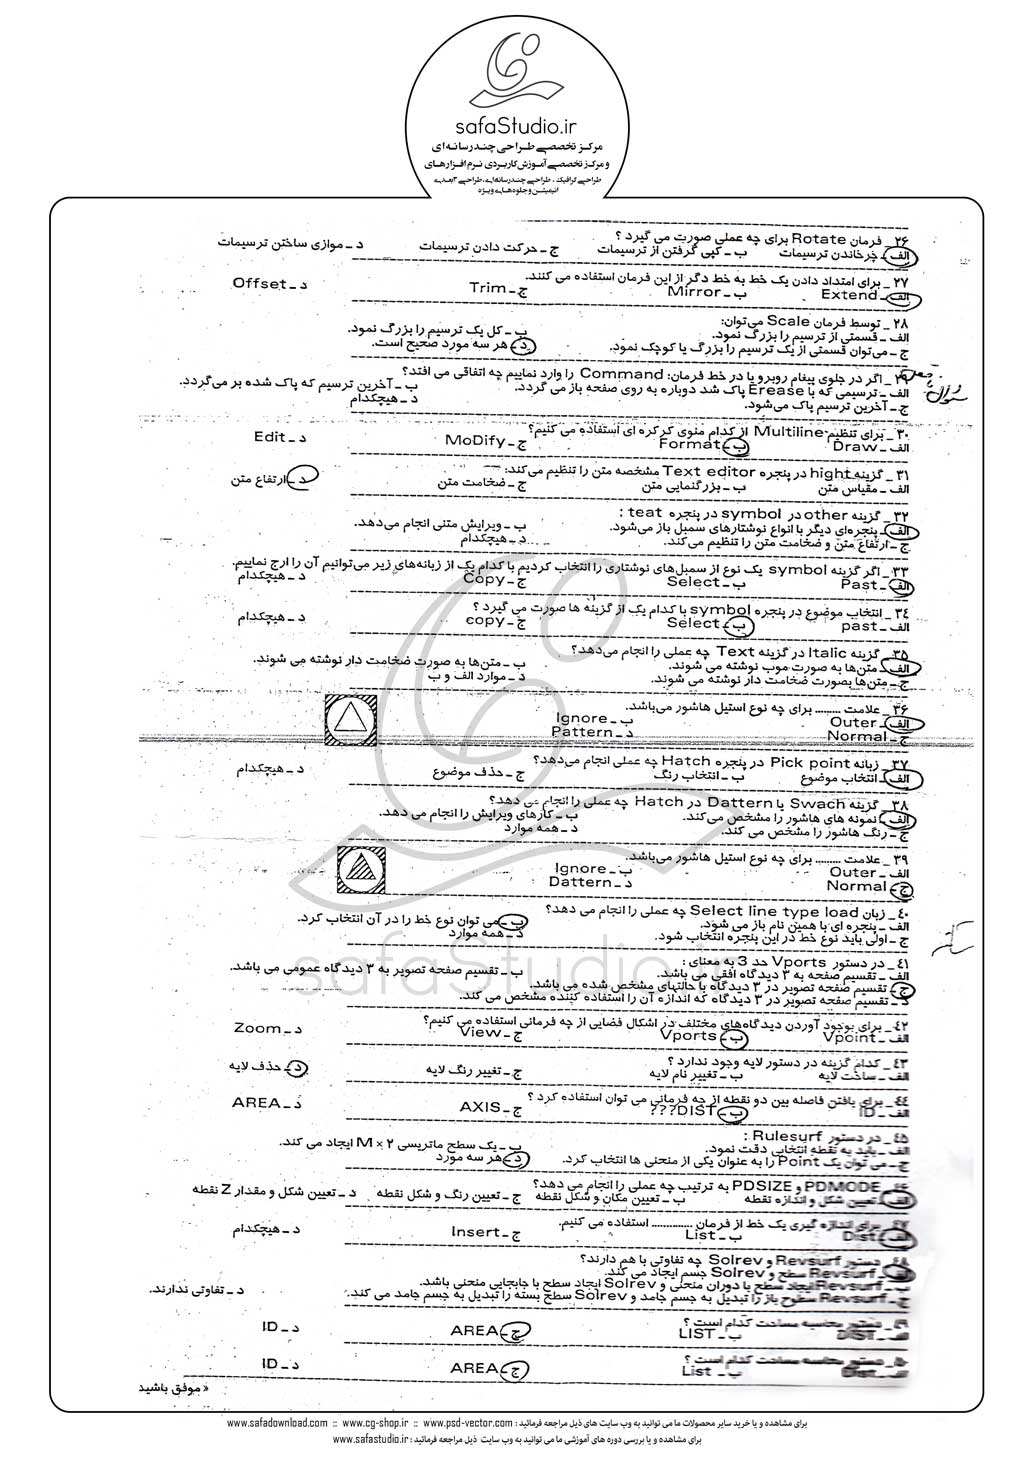 safaStudio.ir
مرکز تخصصی طراحی چندرسانه‌ای
و مرکز تخصصی آموزش کاربردی نرم افزارهای
طراحی گرافیک ، طراحی چندرسانه‌ای، طراحی ۳بعدی
انیمیشن و جلوه‌های ویژه
۲۶ _ فرمان Rotate برای چه عملی صورت می گیرد ؟
الف _ چرخاندن ترسیمات ب _ کپی گرفتن از ترسیمات ج _ حرکت دادن ترسیمات د _ موازی ساختن ترسیمات
۲۷ _ برای امتداد دادن یک خط به خط دگر از این فرمان استفاده می کنند.
الف _ Extend ب _ Mirror ج _ Trim د _ Offset
۲۸ _ توسط فرمان Scale می‌توان:
الف _ قسمتی از ترسیم را بزرگ نمود. ب _ کل یک ترسیم را بزرگ نمود.
ج _ می‌توان قسمتی از یک ترسیم را بزرگ یا کوچک نمود. د _ هر سه مورد صحیح است.
۲۹ _ اگر در جلوی پیغام روبرو یا در خط فرمان: Command را وارد نماییم چه اتفاقی می افتد؟
الف _ ترسیمی که با Erease پاک شد دوباره به روی صفحه باز می گردد. ب _ آخرین ترسیم که پاک شده بر می‌گردد.
ج _ آخرین ترسیم پاک می‌شود. د _ هیچکدام
۳۰ _ برای تنظیم Multiline از کدام منوی کرکره ای استفاده می کنیم؟
الف _ Draw ب _ Format ج _ MoDify د _ Edit
۳۱ _ گزینه hight در پنجره Text editor مشخصه متن را تنظیم می‌کند:
الف _ مقیاس متن ب _ بزرگنمایی متن ج _ ضخامت متن د _ ارتفاع متن
۳۲ _ گزینه other در symbol در پنجره teat :
الف _ پنجره‌ای دیگر با انواع نوشتارهای سمبل باز می‌شود. ب _ ویرایش متنی انجام می‌دهد.
ج _ ارتفاع متن و ضخامت متن را تنظیم می‌کند. د _ هیچکدام
۳۳ _ اگر گزینه symbol یک نوع از سمبل‌های نوشتاری را انتخاب کردیم با کدام یک از زبانه‌های زیر می‌توانیم آن را ارج نماییم.
الف _ Past ب _ Select ج _ Copy د _ هیچکدام
۳۴ _ انتخاب موضوع در پنجره symbol با کدام یک از گزینه ها صورت می گیرد ؟
الف _ past ب _ Select ج _ copy د _ هیچکدام
۳۵ _ گزینه Italic در گزینه Text چه عملی را انجام می‌دهد؟
الف _ متن‌ها به صورت موب نوشته می شوند. ب _ متن‌ها به صورت ضخامت دار نوشته می شوند.
ج _ متن‌ها بصورت ضخامت دار نوشته می شوند. د _ موارد الف و ب
۳۶ _ علامت ......... برای چه نوع استیل هاشور می‌باشد.
الف _ Outer ب _ Ignore
ج _ Normal د _ Pattern
۳۷ _ زبانه Pick point در پنجره Hatch چه عملی انجام می‌دهد؟
الف _ انتخاب موضوع ب _ انتخاب رنگ ج _ حذف موضوع د _ هیچکدام
۳۸ _ گزینه Swach یا Dattern در Hatch چه عملی را انجام می دهد؟
الف _ نمونه های هاشور را مشخص می‌کند. ب _ کارهای ویرایش را انجام می دهد.
ج _ رنگ هاشور را مشخص می کند. د _ همه موارد
۳۹ _ علامت ......... برای چه نوع استیل هاشور می‌باشد.
الف _ Outer ب _ Ignore
ج _ Normal د _ Dattern
۴۰ _ زبان Select line type load چه عملی را انجام می دهد؟
الف _ پنجره ای با همین نام باز می شود. ب _ می توان نوع خط را در آن انتخاب کرد.
ج _ اولی باید نوع خط در این پنجره انتخاب شود. د _ همه موارد
۴۱ _ در دستور Vports حد 3 به معنای :
الف _ تقسیم صفحه به ۳ دیدگاه افقی می باشد. ب _ تقسیم صفحه تصویر به ۳ دیدگاه عمومی می باشد.
ج _ تقسیم صفحه تصویر در ۳ دیدگاه با حالتهای مشخص شده می باشد.
د _ تقسیم صفحه تصویر در ۳ دیدگاه که اندازه آن را استفاده کننده مشخص می کند.
۴۲ _ برای بوجود آوردن دیدگاه‌های مختلف در اشکال فضایی از چه فرمانی استفاده می کنیم؟
الف _ Vpoint ب _ Vports ج _ View د _ Zoom
۴۳ _ کدام گزینه در دستور لایه وجود ندارد ؟
الف _ ساخت لایه ب _ تغییر نام لایه ج _ تغییر رنگ لایه د _ حذف لایه
۴۴ _ برای یافتن فاصله بین دو نقطه از چه فرمانی می توان استفاده کرد ؟
الف _ ID ب _ DIST??? ج _ AXIS د _ AREA
۴۵ _ در دستور Rulesurf :
الف _ باید به نقطه انتخابی دقت نمود. ب _ یک سطح ماتریسی ۲ × M ایجاد می کند.
ج _ می توان یک Point را به عنوان یکی از منحنی ها انتخاب کرد. د _ هر سه مورد
۴۶ _ PDMODE و PDSIZE به ترتیب چه عملی را انجام می دهد؟
الف _ تعیین شکل و اندازه نقطه ب _ تعیین مکان و شکل نقطه ج _ تعیین رنگ و شکل نقطه د _ تعیین شکل و مقدار Z نقطه
۴۷ _ برای اندازه گیری یک خط از فرمان ............. استفاده می کنیم.
الف _ Dist ب _ List ج _ Insert د _ هیچکدام
۴۸ _ دستور Revsurf و Solrev چه تفاوتی با هم دارند؟
الف _ Revsurf سطح و Solrev جسم ایجاد می کند.
ب _ Revsurf ایجاد سطح با دوران منحنی و Solrev ایجاد سطح با جابجایی منحنی باشد.
ج _ Revsurf سطوح باز را تبدیل به جسم جامد و Solrev سطح بسته را تبدیل به جسم جامد می کند. د _ تفاوتی ندارند.
۴۹ _ دستور محاسبه مساحت کدام است ؟
الف _ DIST ب _ LIST ج _ AREA د _ ID
۵۰ _ دستور محاسبه مساحت کدام است ؟
الف _ Dist ب _ List ج _ AREA د _ ID
« موفق باشید
safaStudio.ir
برای مشاهده و یا خرید سایر محصولات ما می توانید به وب سایت های ذیل مراجعه فرمائید : www.safadownload.com :: www.cg-shop.ir :: www.psd-vector.com
برای مشاهده و یا بررسی دوره های آموزشی ما می توانید به وب سایت ذیل مراجعه فرمائید : www.safastudio.ir